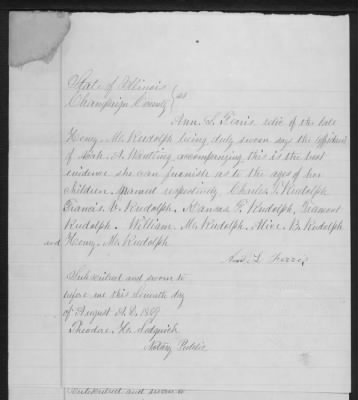 State of Illinois
Champaign County } ss
Ann. L. Ferris, relic of the late
Henry. M. Rudolph being duly sworn says the affidavit
of Noah. A. accompanying this is the best
evidence she can furnish as to the ages of her
children. named respectively Charles. I. Rudolph.
Francis. V. Rudolph. Kansas. F. Rudolph,
Rudolph. William. M. Rudolph. Alice. B. Rudolph
and Henry. M. Rudolph
Ann L. Ferris
Subscribed and sworn to
before me this Seventh day
of August A. D. 1869
Theodore. H. Sedgwick
Notary Public
Subscribed and sworn to